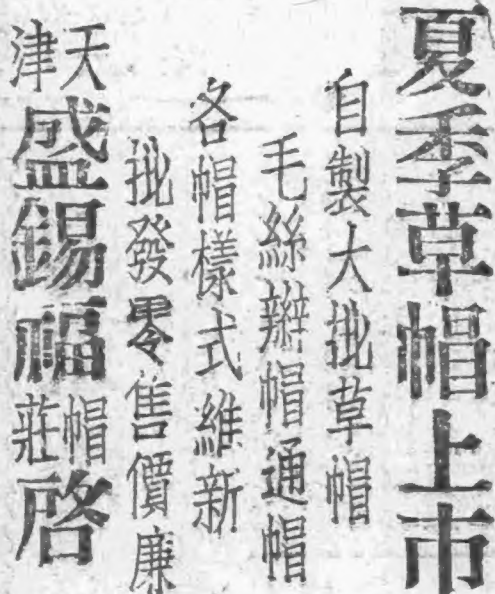 夏季草帽上市
自製大批草帽
毛絲辮帽通帽
各帽樣式維新
批發零售價廉
天津盛錫福帽莊啓